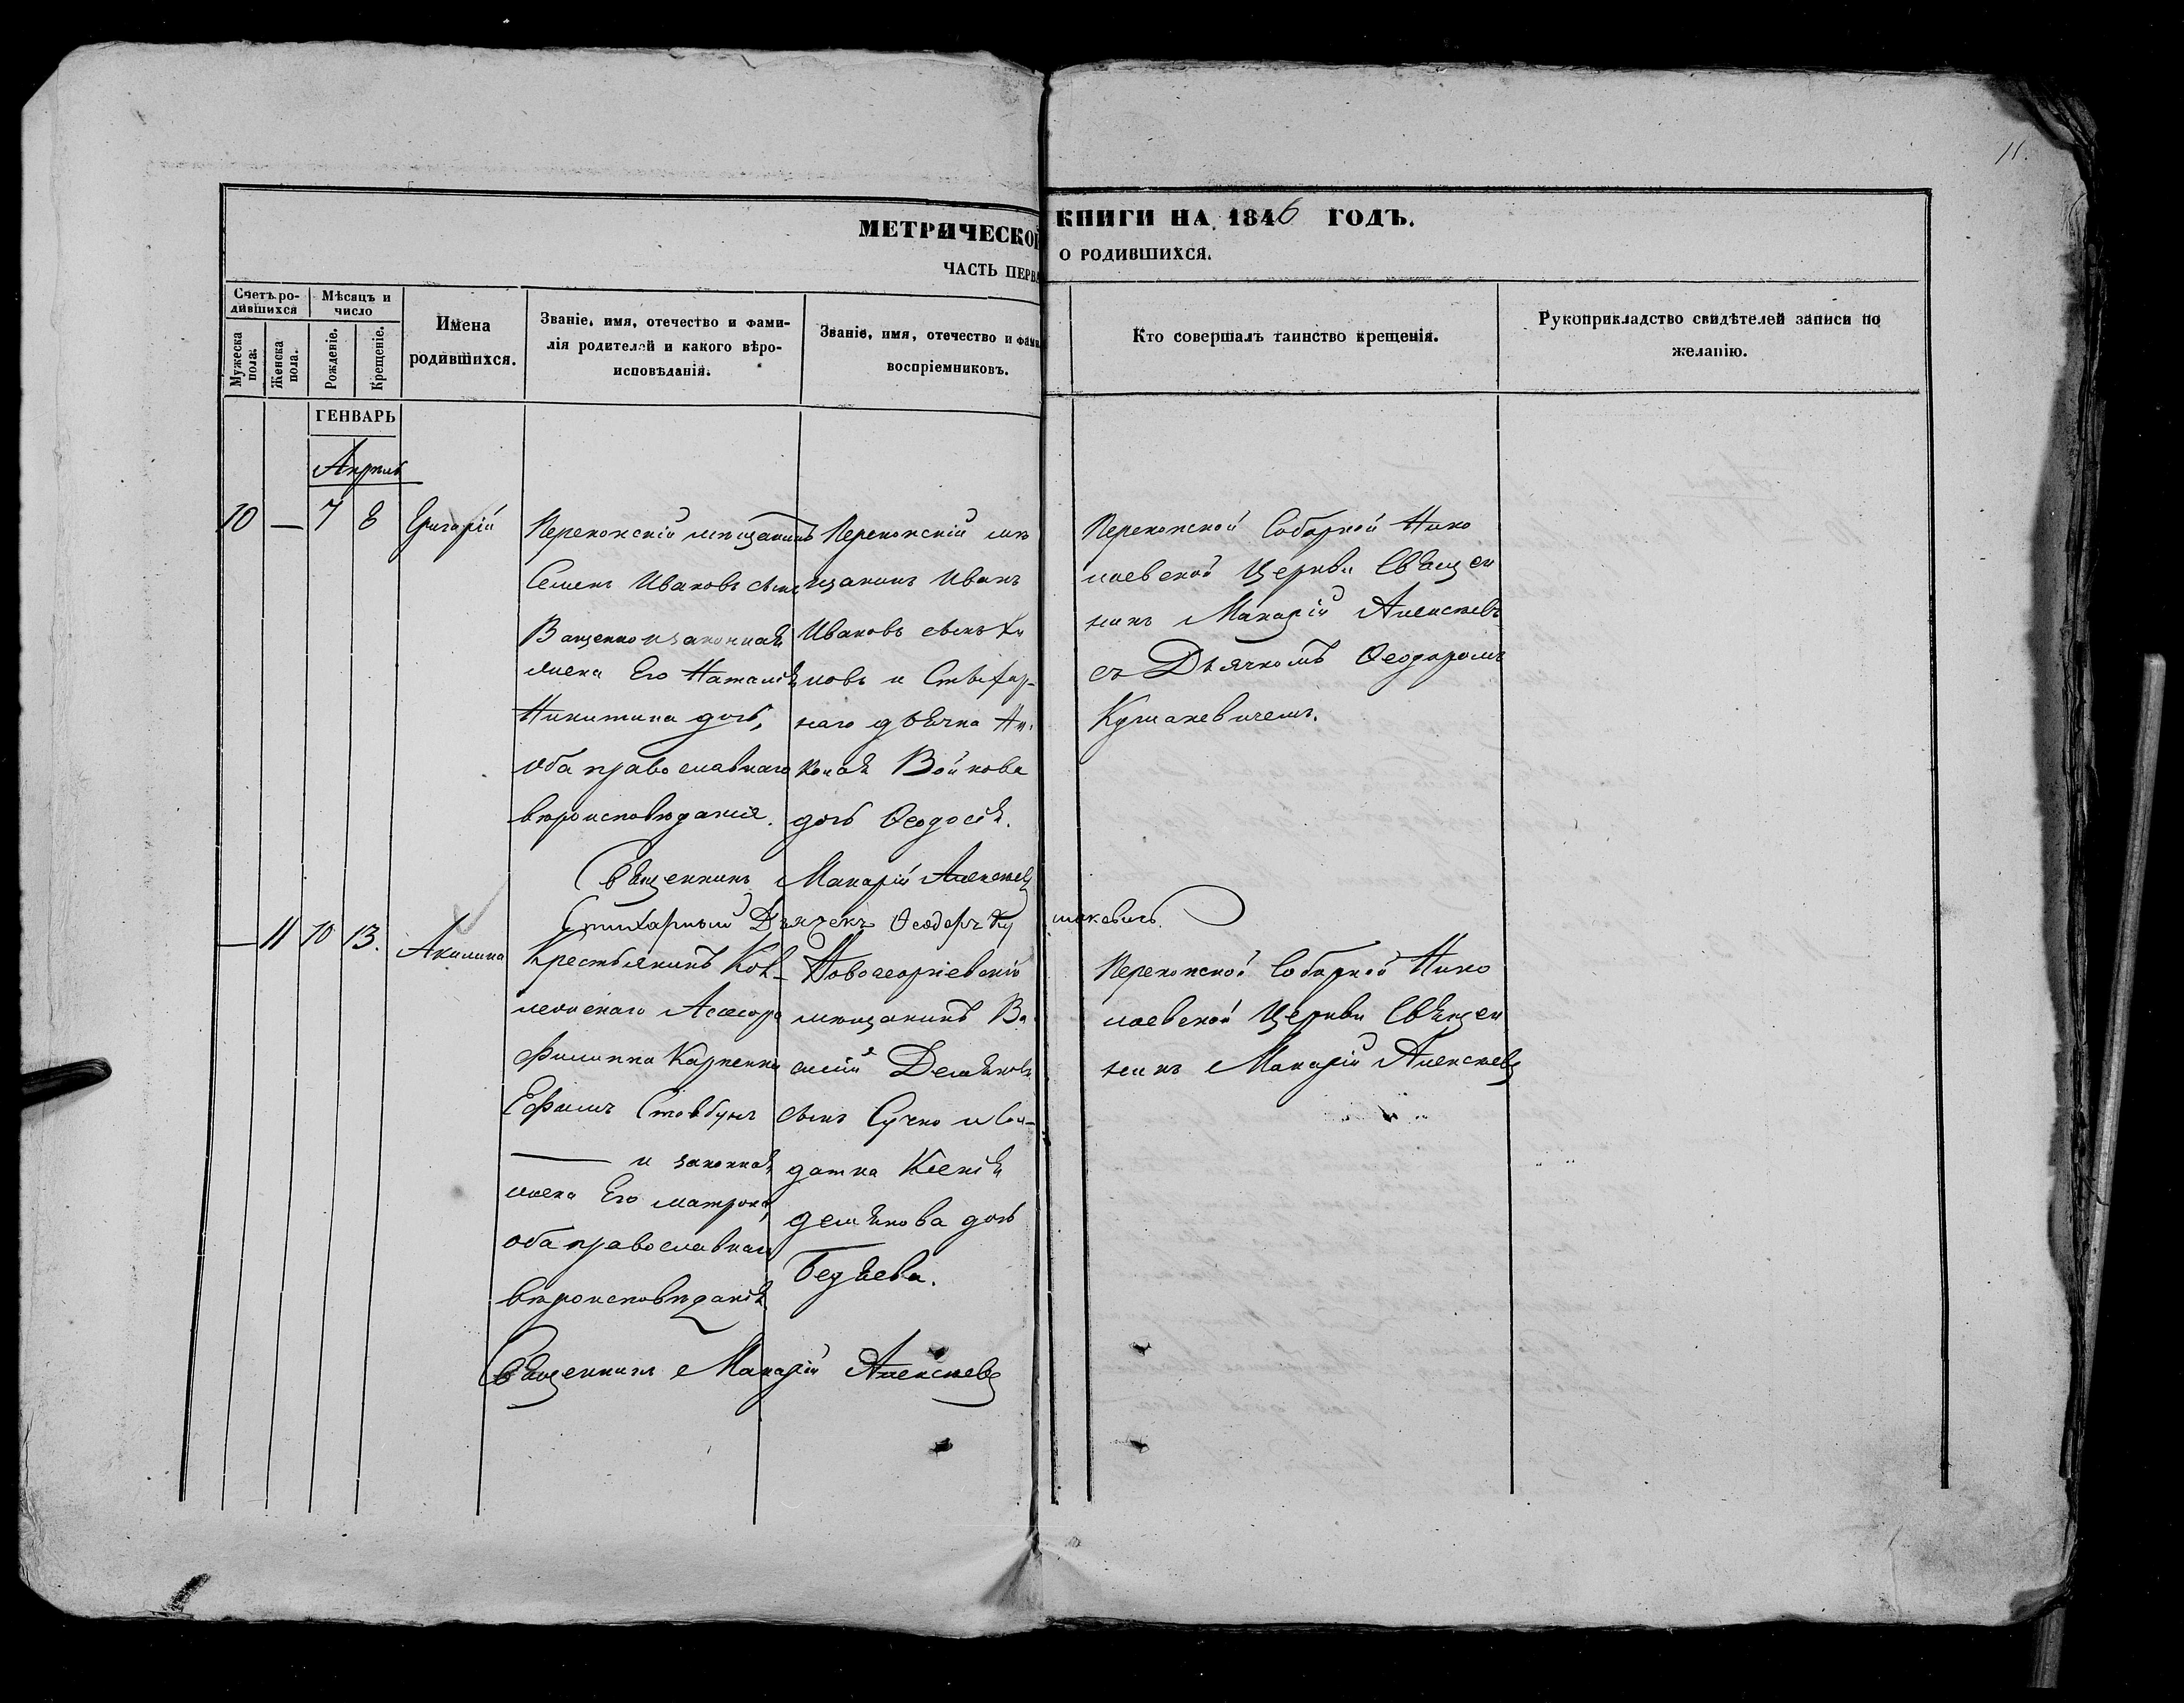 11.
МЕТРИЧЕСКОЙ КНИГИ НА 1846 ГОДЪ.
ЧАСТЬ ПЕРВА О РОДИВШИХСЯ.
Счетъ родившихся
Мужеска пола.
Женска пола.
Мѣсяцъ и число
Рожденіе.
Крещеніе.
Имена родившихся.
Званіе, имя, отечество и фами-
лія родителей и какого вѣро-
исповѣданія.
Званіе, имя, отечество и фами
воспріемниковъ.
Кто совершалъ таинство крещенія.
Рукоприкладство свидѣтелей записи по
желанію.
ГЕНВАРЬ
Апрель
10 — 7 8 Григорій
Перекопскій мѣщанинъ
Семенъ Ивановъ сынъ
Ващенко и законная
жена Его Наталія
Никитина дочь,
оба православнаго
вѣроисповѣданія.
Перекопскій мѣ
щанинъ Иванъ
Ивановъ сынъ
новъ и Стихар-
наго дьячка Ни
колая Войнова
дочь Ѳеодосія.
Перекопской Соборной Нико
лаевской Церкви Священ
никъ Макарій Алексѣевъ
съ Дьячкомъ Ѳеодоромъ
Кушакевичемъ.
Священникъ Макарій Алексѣевъ
Стихарный Дьячекъ Ѳеодоръ Ку шакевичъ.
— 11 10 13. Акилина
Крестьянинъ Кол-
лежскаго Асесора
Филиппа Карпенка
Ефимъ Стовбунъ
— и законная
жена Его матрона,
оба православнаго
вѣроисповѣданія
Новогеоргіевскій
мѣщанинъ Ва
силій Демяновъ
сынъ Сучко и Сол-
датка Ксенія
демянова дочь
Бедяева.
Перекопской Соборной Нико
лаевской Церкви Священ
никъ Макарій Алексѣевъ
Священникъ Макарій Алексѣевъ